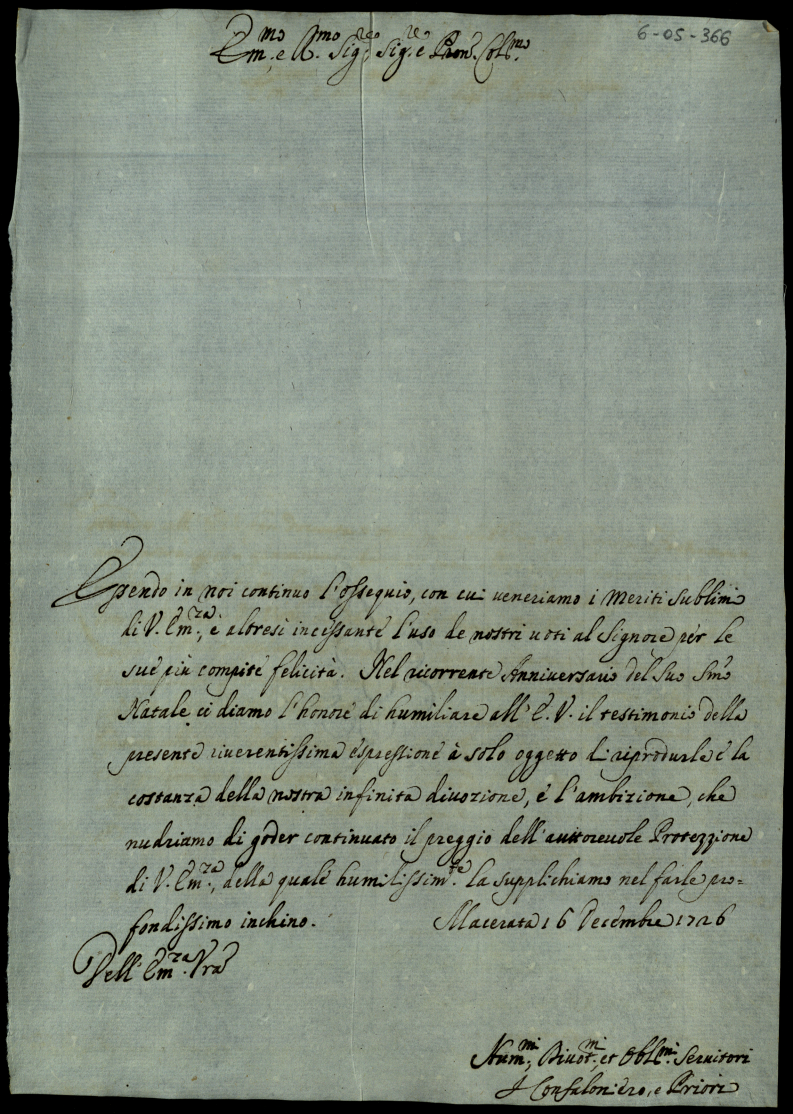 6-05-366
Em.mo e R.mo Sig.re Sig.re e Pron. Col.mo
Essendo in noi continuo l'ossequio, con cui veneriamo i Meriti Sublimi
di V. Em.za, è altresì incessante l'uso de nostri voti al Signore per le
sue più compite felicità. Nel ricorrente Anniversario del Suo SS.mo
Natale ci diamo l'honore di humiliare all'E. V. il testimonio della
presente riverentissima espressione à solo oggetto di riprodurle e la
costanza della nostra infinita divozione, e l'ambizione, che
nudriamo di goder continuato il preggio dell'autorevole Protezzione
di V. Em.za, della quale humilissim.te la supplichiamo nel farle pro=
fondissimo inchino. Macerata 16 Decembre 1726
Dell'Em.za Vra
Hum.mi, Divot.mi, et Obl.mi Servitori
Il Confaloniero, e Priori